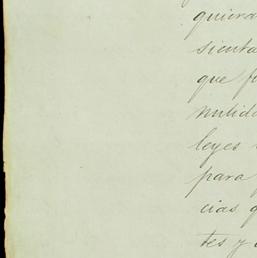 quiera
sienta
que f
nulida
leyes
para
cias q
tes y